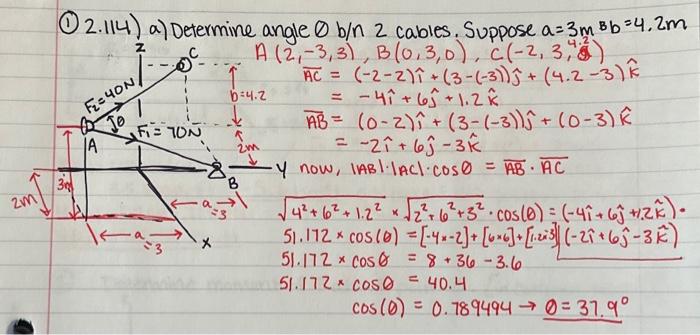 ① 2.114) a) Determine angle θ b/n 2 cables. Suppose a=3m & b=4.2m
A (2,-3,3), B(0,3,0), C(-2,3,4.2)
AC = (-2-2)î + (3-(-3))ĵ + (4.2-3)k̂
= -4î + 6ĵ + 1.2k̂
AB = (0-2)î + (3-(-3))ĵ + (0-3)k̂
= -2î + 6ĵ - 3k̂
now, |AB|·|AC|·cosθ = AB · AC
√4²+6²+1.2² × √2²+6²+3² · cos(θ) = (-4î+6ĵ+1.2k̂)·
(-2î+6ĵ-3k̂)
51.172 × cos(θ) = [-4×-2]+[6×6]+[1.2×3]
51.172 × cosθ = 8 + 36 - 3.6
51.172 × cosθ = 40.4
cos(θ) = 0.789494 → θ = 37.9°
z
C
F₂=40N
θ
b=4.2
F₁=70N
A
2m
y
B
3m
2m
a
=3
a
=3
x